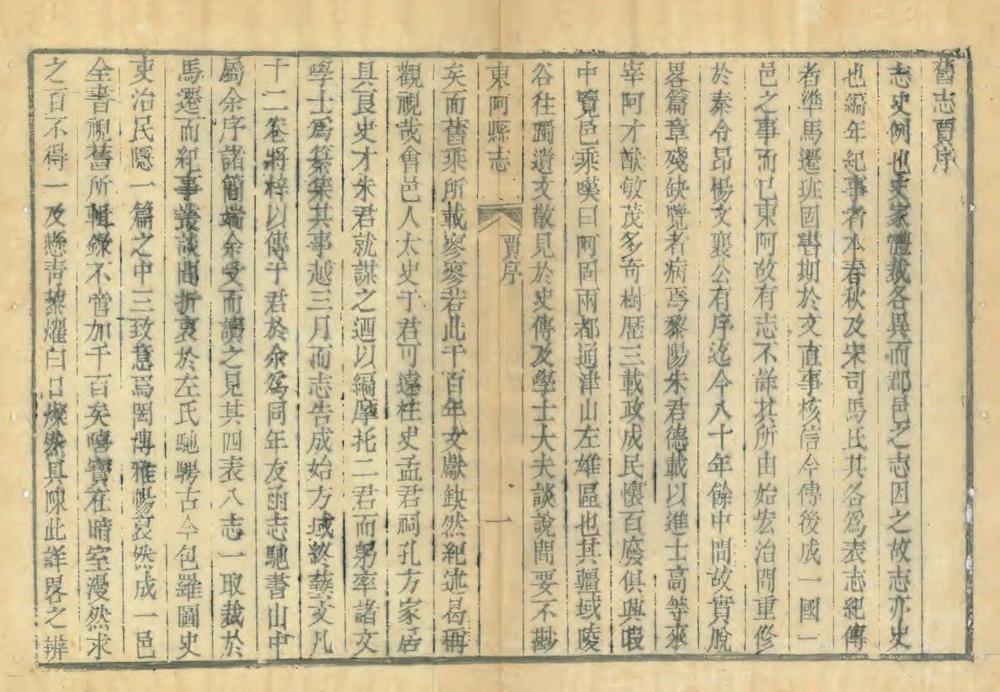 舊志賈序
志史例也史家體裁各異而郡邑之志因之故志亦史
也編年紀事者本春秋及宋司馬氏其各爲表志紀傳
者準馬遷班固書期於文直事核信今傳後成一國一
邑之事而已東阿故有志不詳其所由始宏治間重修
於秦令昂楊文襄公有序迄今八十年餘中間故實脫
畧篇章殘缺覽者病焉黎陽朱君德載以進士高等來
宰阿才猷敏茂多奇樹歷三載政成民懷百廢俱興暇
中覽邑乘嘆曰阿固兩都通津山左雄區也其疆域陵
谷往躅遺文散見於史傳及學士大夫談說間要不尠
東阿縣志
賈序
一
矣而舊乘所載寥寥若此千百年文獻缺然紀述曷稱
觀視哉會邑人太史于君可遠柱史孟君祠孔方家居
具良史才朱君就謀之迺以編摩托二君而躬率諸文
學士爲纂集其事越三月而志告成始方域終藝文凡
十二卷將梓以傳于君於余爲同年友函志馳書山中
屬余序諸簡端余受而讀之見其四表八志一取裁於
馬遷而紀事叢談間折衷於左氏馳騁古今包羅圖史
吏治民隱一篇之中三致意焉閎傳雅暢裒然成一邑
全書視舊所輯錄不啻加千百矣嘻寶在暗室漫然求
之百不得一及懸青藜燿白日燦然具陳此詳畧之辨